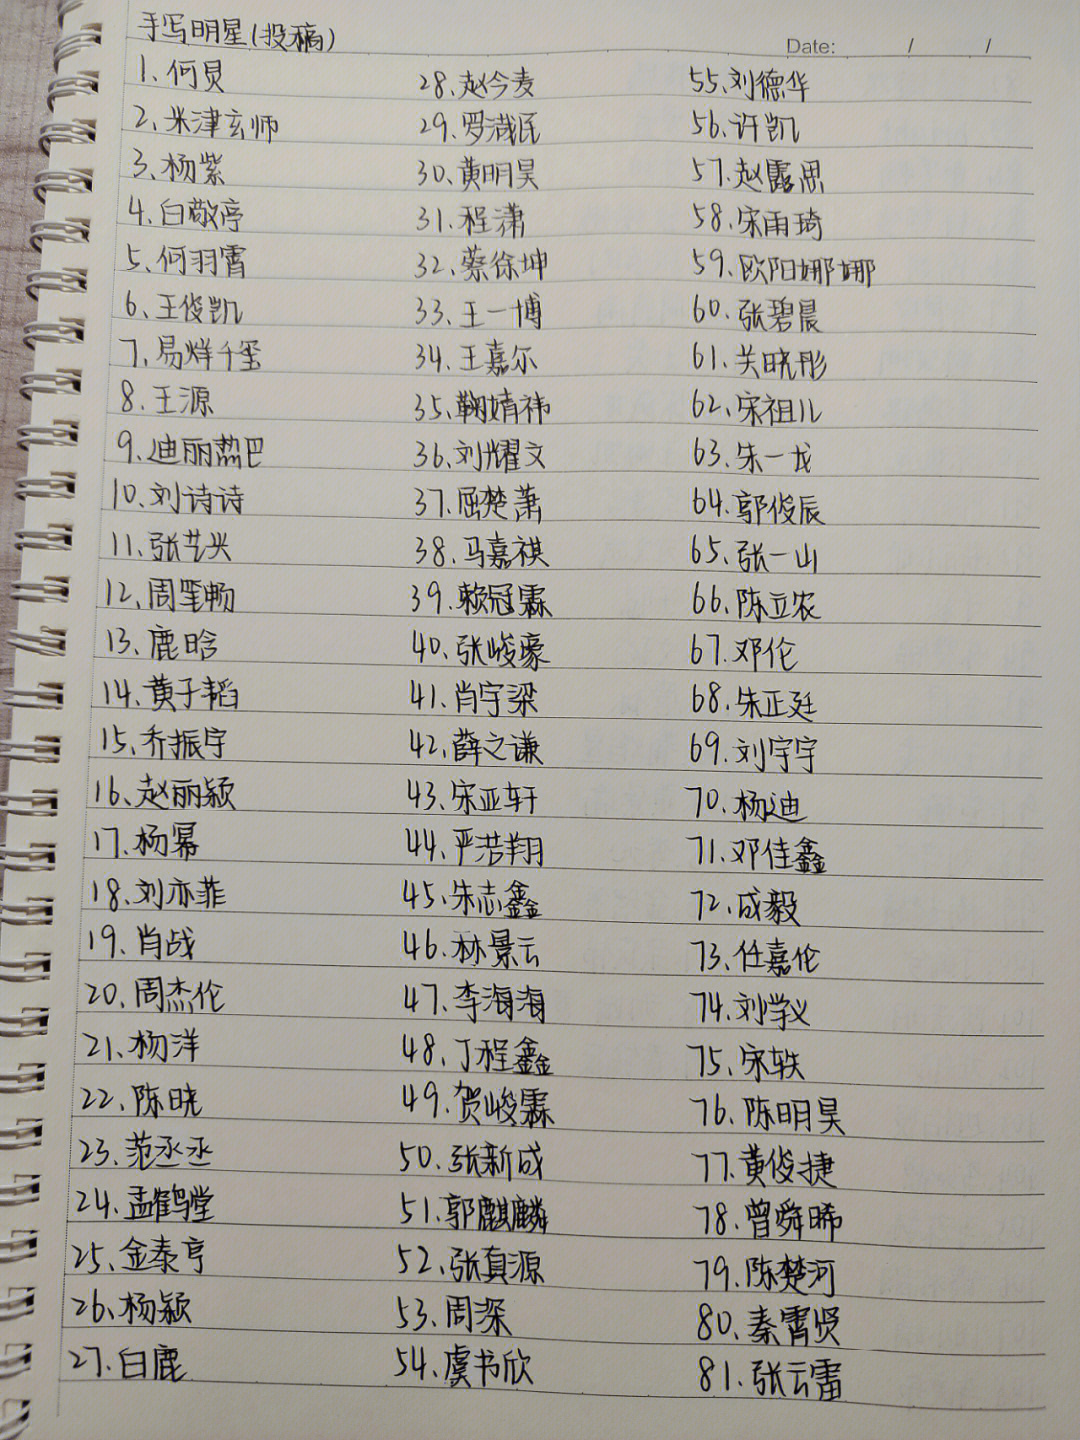 手写明星(投稿)
Date: / /
1、何炅
2、米津玄师
3、杨紫
4、白敬亭
5、何羽霄
6、王俊凯
7、易烊千玺
8、王源
9、迪丽热巴
10、刘诗诗
11、张艺兴
12、周笔畅
13、鹿晗
14、黄子韬
15、乔振宇
16、赵丽颖
17、杨幂
18、刘亦菲
19、肖战
20、周杰伦
21、杨洋
22、陈晓
23、范丞丞
24、孟鹤堂
25、金泰亨
26、杨颖
27、白鹿
28、赵今麦
29、罗渽民
30、黄明昊
31、程潇
32、蔡徐坤
33、王一博
34、王嘉尔
35、鞠婧祎
36、刘耀文
37、屈楚萧
38、马嘉祺
39、赖冠霖
40、张峻豪
41、肖宇梁
42、薛之谦
43、宋亚轩
44、严浩翔
45、朱志鑫
46、林景云
47、李海海
48、丁程鑫
49、贺峻霖
50、张新成
51、郭麒麟
52、张真源
53、周深
54、虞书欣
55、刘德华
56、许凯
57、赵露思
58、宋雨琦
59、欧阳娜娜
60、张碧晨
61、关晓彤
62、宋祖儿
63、朱一龙
64、郭俊辰
65、张一山
66、陈立农
67、邓伦
68、朱正廷
69、刘宇宁
70、杨迪
71、邓佳鑫
72、成毅
73、任嘉伦
74、刘学义
75、宋轶
76、陈明昊
77、黄俊捷
78、曾舜晞
79、陈楚河
80、秦霄贤
81、张云雷